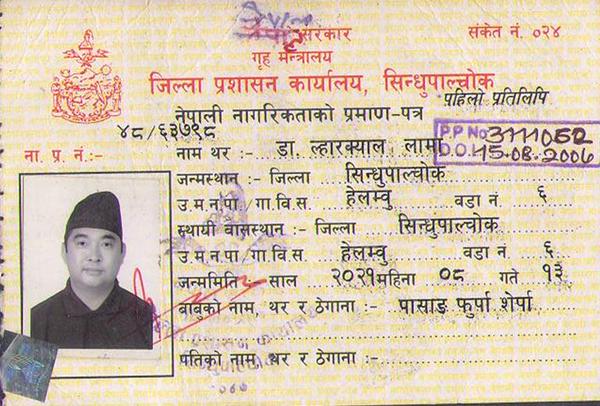 सरकार
संकेत नं. ०२४
गृह मन्त्रालय
जिल्ला प्रशासन कार्यालय, सिन्धुपाल्चोक
पहिलो प्रतिलिपि
नेपाली नागरिकताको प्रमाण-पत्र
४८/६३७९८
P.P No. 3111052
D.O.I. 15.08.2006
ना. प्र. नं.:-
नाम थर :- डा. ल्हारक्याल लामा
जन्मस्थान :- जिल्ला सिन्धुपाल्चोक
उ.म.न.पा./गा.वि.स. हेलम्बु वडा नं ६
स्थायी बासस्थान :- जिल्ला सिन्धुपाल्चोक
उ.म.न.पा./गा.वि.स. हेलम्बु वडा नं ६
जन्ममिति :- साल २०२१ महिना ०८ गते १३
बाबुको नाम, थर र ठेगाना :- पासाङ फुर्पा शेर्पा
पतिको नाम, थर र ठेगाना :-